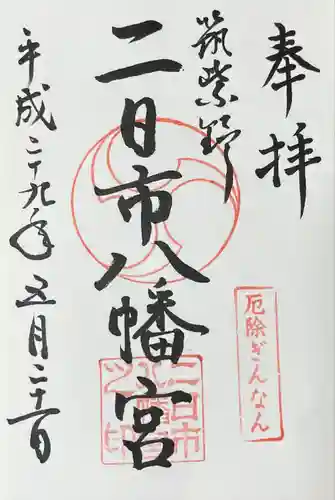 奉拝
筑紫野
二日市八幡宮
平成二十九年五月二十一日
厄除ぎんなん
二日市八幡宮之印